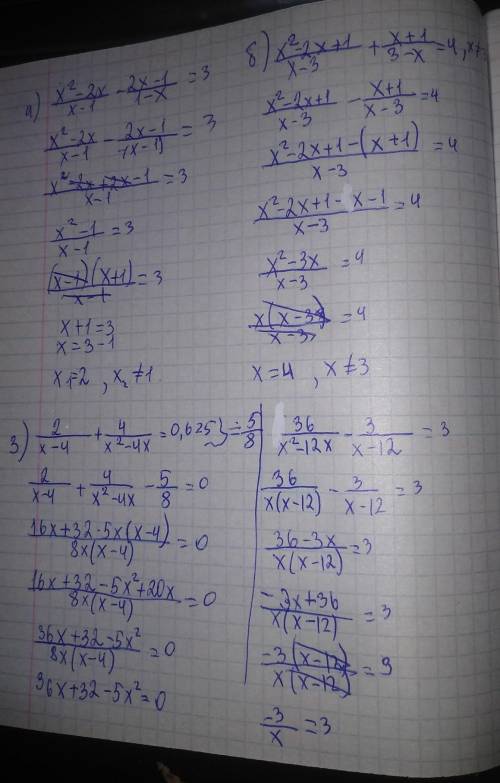 а) (x²-2x)/(x-1) - (2x-1)/(1-x) = 3
(x²-2x)/(x-1) - (2x-1)/(-(x-1)) = 3
(x²-2x+2x-1)/(x-1) = 3
(x²-1)/(x-1) = 3
((x-1)(x+1))/(x-1) = 3
x+1=3
x=3-1
x₁=2, x₂≠1
б) (x²-2x+1)/(x-3) + (x+1)/(3-x) = 4, x≠
(x²-2x+1)/(x-3) - (x+1)/(x-3) = 4
(x²-2x+1-(x+1))/(x-3) = 4
(x²-2x+1-x-1)/(x-3) = 4
(x²-3x)/(x-3) = 4
(x(x-3))/(x-3) = 4
x=4, x≠3
3) 2/(x-4) + 4/(x²-4x) = 0,625} = 5/8
2/(x-4) + 4/(x²-4x) - 5/8 = 0
(16x+32-5x(x-4))/(8x(x-4)) = 0
(16x+32-5x²+20x)/(8x(x-4)) = 0
(36x+32-5x²)/(8x(x-4)) = 0
36x+32-5x²=0
36/(x²-12x) - 3/(x-12) = 3
36/(x(x-12)) - 3/(x-12) = 3
(36-3x)/(x(x-12)) = 3
(-3x+36)/(x(x-12)) = 3
(-3(x-12))/(x(x-12)) = 3
-3/x = 3